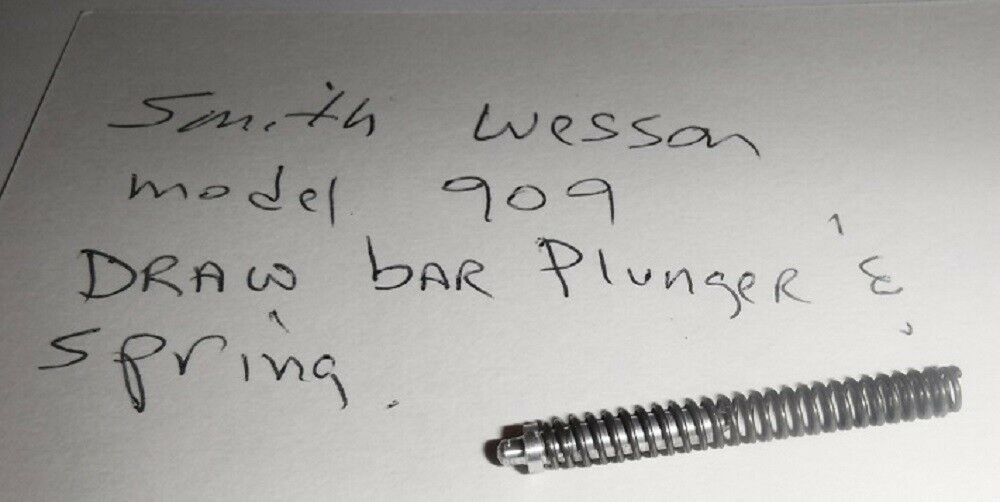 Smith Wesson
model 909
DRAW bAR Plunger &
spring.